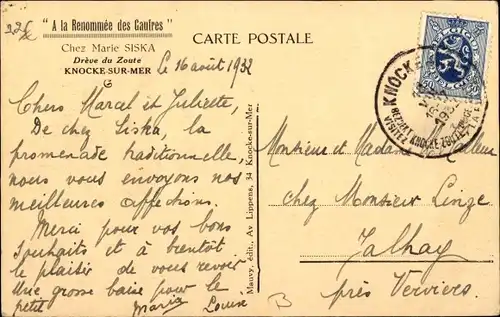 225
"A la Renommée des Gaufres"
Chez Marie SISKA
Drève du Zoute
KNOCKE-SUR-MER
CARTE POSTALE
Le 16 août 1932
Chers Marcel et Juliette,
De chez Siska, la
promenade traditionnelle,
nous vous envoyons nos
meilleures affections.
Merci pour vos bons
souhaits et à bientôt
le plaisir de vous revoir
Une grosse baise pour le
petit
Maria Louis
Maury, édit., Av. Lippens, 34 Knocke-sur-Mer
BELGIQUE
KNOCKE
1932
VISITEZ KNOCKE ZOUTE
Monsieur et Madame
chez Monsieur Linze
Jalhay
près Verviers
B